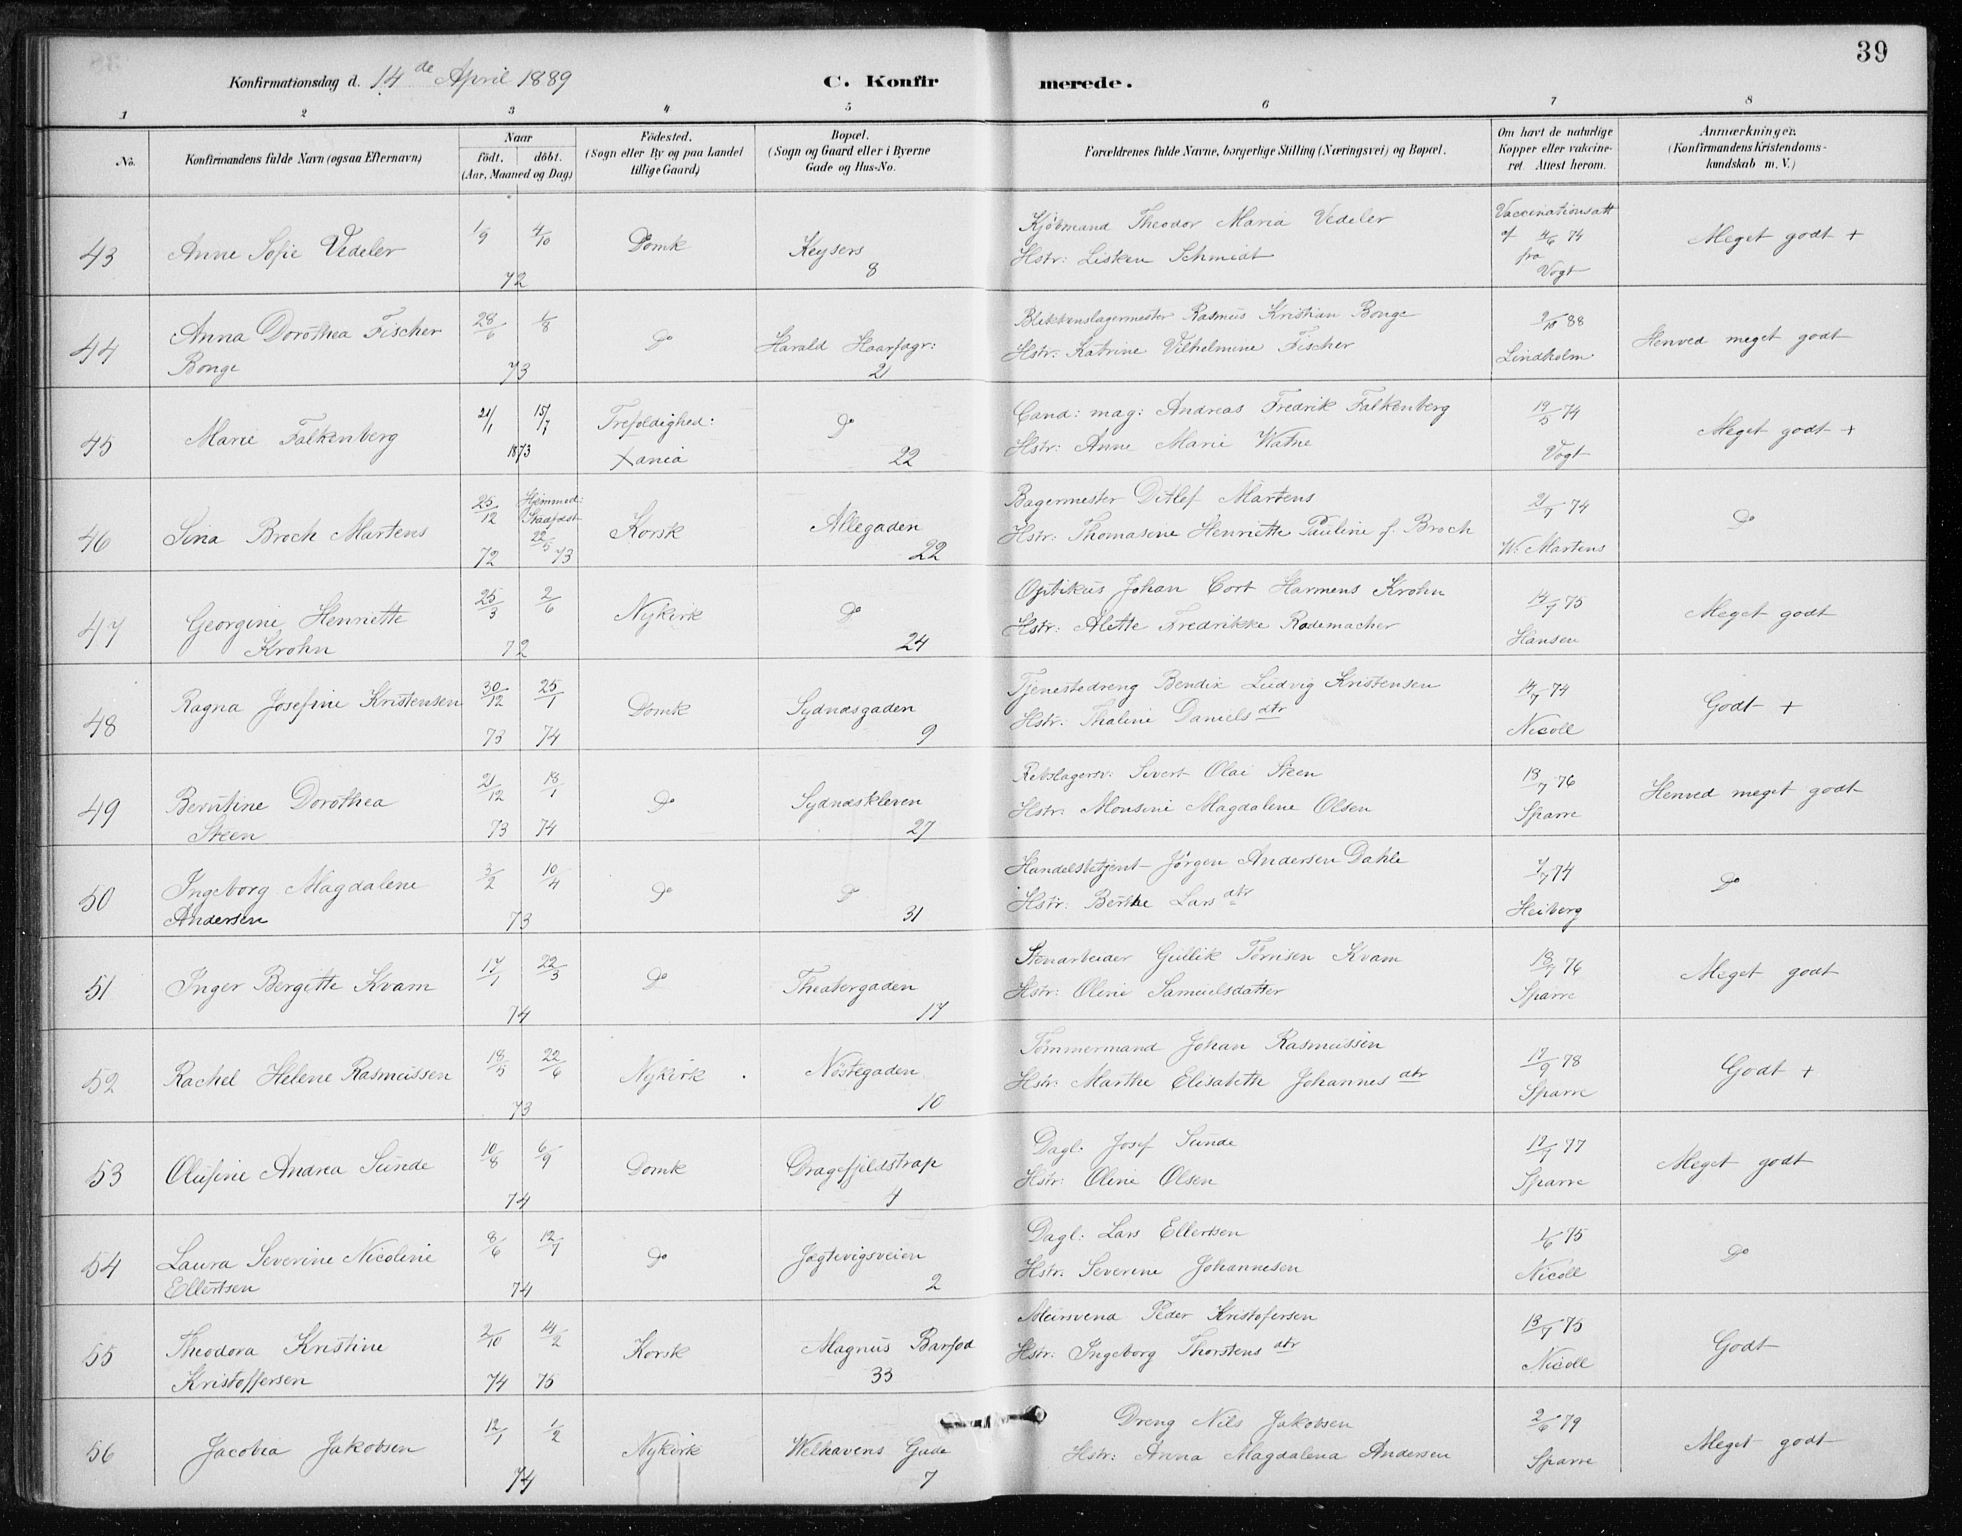 39
Konfirmationsdag d. 14de April 1889
C. Konfirmerede.
1 2 3 4 5 6 7 8
No. Konfirmandens fulde Navn (ogsaa Efternavn) Naar født. døbt. (Aar, Maaned og Dag) Fødested. (Sogn eller By og paa Landet tillige Gaard) Bopæl. (Sogn og Gaard eller i Byerne Gade og Hus-No. Forældrenes fulde Navne, borgerlige Stilling (Næringsvei) og Bopæl. Om havt de naturlige Kopper eller vakcineret. Attest herom. Anmærkninger. (Konfirmandens Kristendomskundskab m. V.)
43 Anne Sofie Vedeler 1/9 4/10 72 Domk Keysers 8 Kjøbmand Theodor Maria Vedeler
Hstr: Lisken Schmidt Vaccinationsatt af 4/6 74 fra Vogt Meget godt +
44 Anna Dorothea Fischer Bonge 28/6 1/8 73 Do Harald Haarfagr: 21 Blikkenslagermester Rasmus Kristian Bonge
Hstr: Katrine Vilhelmine Fischer 2/10 88 Lindholm Henved meget godt
45 Marie Falkenberg 21/1 15/7 1873 Trefoldighed: Xania Do 22 Cand: mag: Andreas Fredrik Falkenberg
Hstr: Anne Marie Watne 19/5 74 Vogt Meget godt +
46 Sina Broch Martens 25/12 72 Hjemmed: Stadfæst 22/5 73 Korsk Allegaden 22 Bagermester Ditlef Martens
Hstr: Thomasine Henriette Pauline f. Broch 21/7 74 W. Martens Do
47 Georgine Henriette Krohn 25/3 2/6 72 Nykirk Do 24 Optikus Johan Cort Harmens Krohn
Hstr: Alette Fredrikke Rodemacher 14/7 75 Hansen Meget godt
48 Ragna Josefine Kristensen 30/12 73 25/1 74 Domk Sydnæsgaden 9 Tjenestedreng Bendix Ludvig Kristensen
Hstr: Thaline Danielsdtr 14/7 74 Nicoll Godt +
49 Berntine Dorothea Steen 21/12 73 18/1 74 Do Sydnæskleven 27 Rebslagersv: Sivert Olai Steen
Hstr: Monsine Magdalene Olsen 18/7 76 Sparre Henved meget godt
50 Ingeborg Magdalene Andersen 3/2 10/4 73 Do Do 31 Handelsbetjent Jørgen Andersen Dahle
Hstr: Berthe Larsdtr 7/7 74 Heiberg Do
51 Inger Bergette Kvam 17/1 22/3 74 Do Theatergaden 17 Stenarbeider Gullik Tørrisen Kvam
Hstr: Oline Samuelsdatter 18/7 76 Sparre Meget godt
52 Rachel Helene Rasmussen 18/5 22/6 73 Nykirk Nøstegaden 10 Tømmermand Johan Rasmussen
Hstr: Marthe Elisabeth Johannesdtr 17/9 78 Sparre Godt +
53 Olufine Andrea Sunde 10/8 6/9 74 Domk Dragefjeldstrap 4 Dagl: Josef Sunde
Hstr: Oline Olsen 17/9 77 Sparre Meget godt
54 Laura Severine Nicoline Ellertsen 8/6 12/7 74 Do Jægtevigsveien 2 Dagl: Lars Ellertsen
Hstr: Severine Johannesen 1/6 75 Nicoll Do
55 Theodora Kristine Kristoffersen 2/10 74 14/2 75 Korsk Magnus Barfod 33 Meirsvend Peder Kristofersen
Hstr: Ingeborg Thorstensdtr 13/7 75 Nicoll Godt
56 Jacobea Jakobsen 12/1 1/2 74 Nykirk Welhavens Gade 7 Dreng Nils Jakobsen
Hstr: Anna Magdalena Andersen 2/6 79 Sparre Meget godt